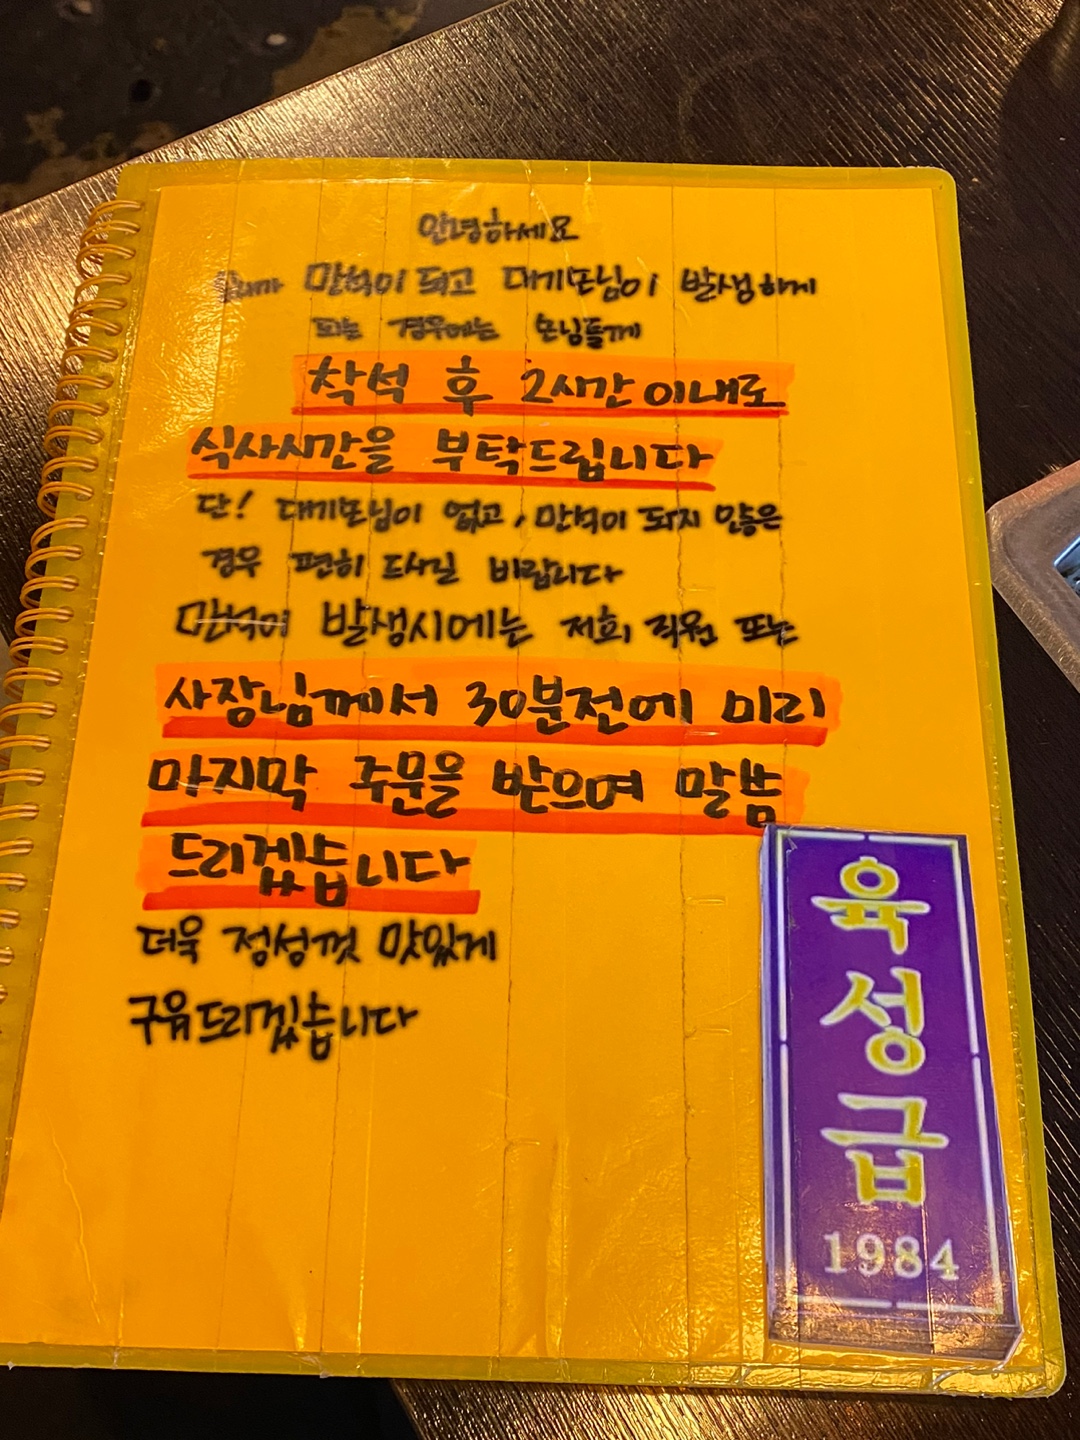 안녕하세요
만석이 되고 대기손님이 발생하게
되는 경우에는 손님들께
착석 후 2시간 이내로
식사시간을 부탁드립니다
단! 대기손님이 없고, 만석이 되지 않은
경우 편히 드시길 바랍니다
만석이 발생시에는 저희 직원 또는
사장님께서 30분전에 미리
마지막 주문을 받으며 말씀
드리겠습니다
더욱 정성껏 맛있게
구워드리겠습니다
육성급
1984